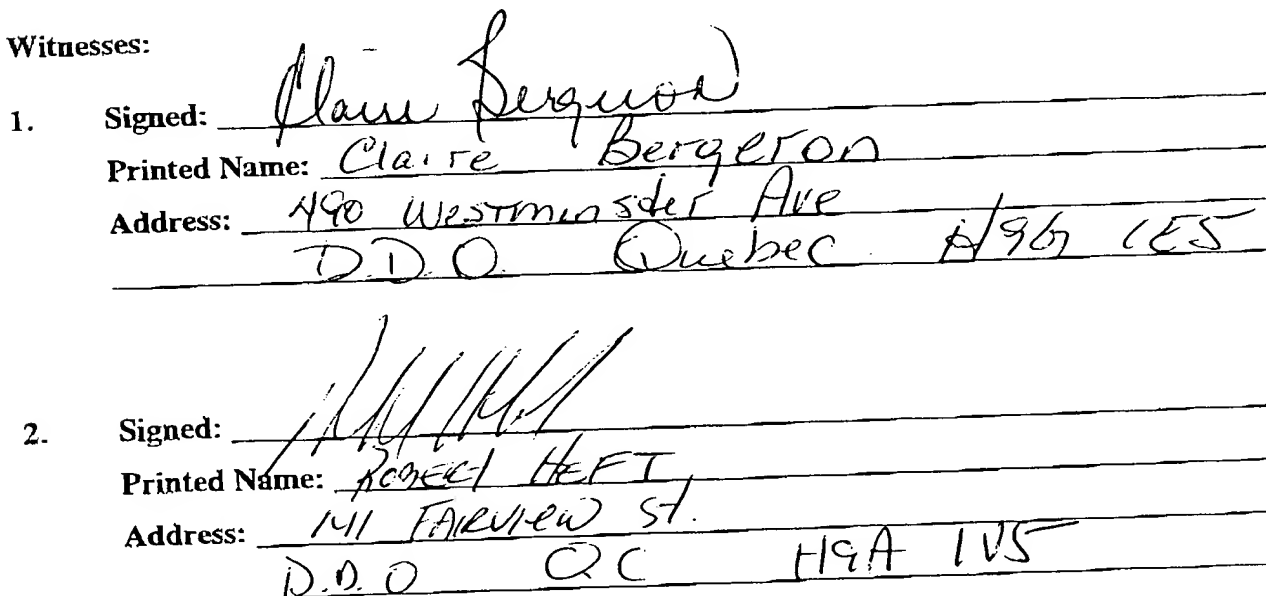 Witnesses:
1. Signed: Claire Bergeron
Printed Name: Claire Bergeron
Address: 490 Westminster Ave
D.D.O. Quebec H9G 1E5
2. Signed:
Printed Name: ROBERT HEFT
Address: 141 FAIRVIEW St.
D.D.O QC H9A 1V5